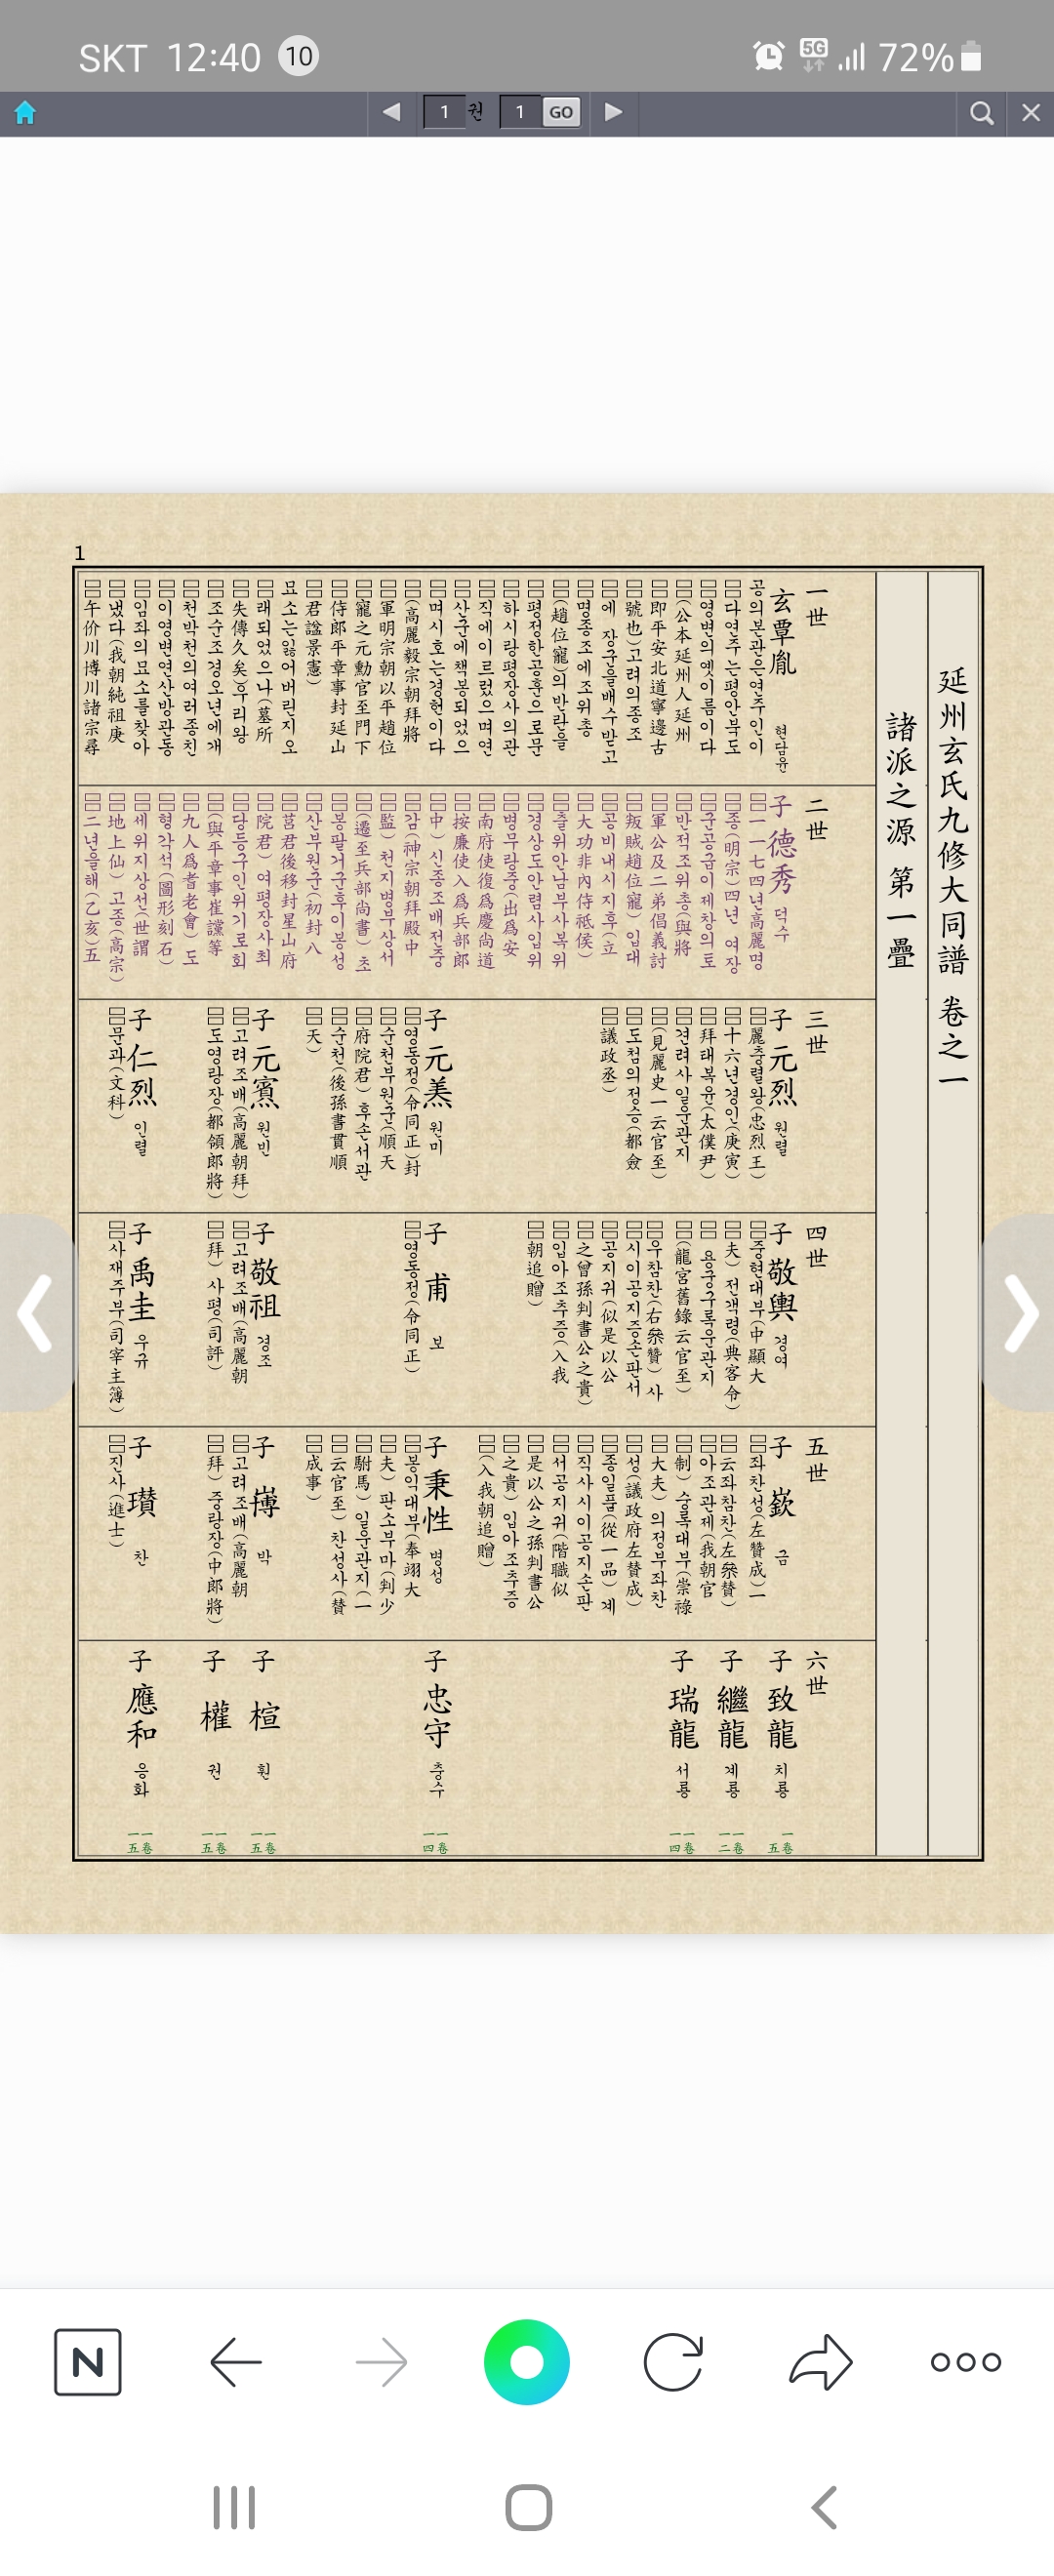 SKT 12:40 10 5G 72%
1 권 1 GO
1
延州玄氏九修大同譜 卷之一
諸派之源 第一疊
一世
玄覃胤 현담윤
공의본관은연주인이
다연주는평안북도
영변의옛이름이다
(公本延州人延州
即平安北道寧邊古
號也)고려의종조
에 장군을배수받고
명종조에조위총
(趙位寵)의반란을
평정한공훈으로문
하시랑평장사의관
직에이르렀으며연
산군에책봉되었으
며시호는경헌이다
(高麗毅宗朝拜將
軍明宗朝以平趙位
寵之元勳官至門下
侍郎平章事封延山
君諡景憲)
묘소는잃어버린지오
래되었으나(墓所
失傳久矣)우리왕
조순조경오년에개
천박천의여러종친
이영변연산방관동
임좌의묘소를찾아
냈다(我朝純祖庚
午价川博川諸宗尋
二世
子 德秀 덕수
一一七四년高麗명
종(明宗)四년 여장
군공급이제창의토
반적조위총(與將
軍公及二弟倡義討
叛賊趙位寵) 입대
공비내시지후(立
大功非內侍祗侯)
출위안남부사복위
경상도안렴사입위
병무랑중(出爲安
南府使復爲慶尚道
按廉使入爲兵部郎
中) 신종조배전중
감(神宗朝拜殿中
監) 천지병부상서
(遷至兵部尚書) 초
봉팔거군후이봉성
산부원군(初封八
莒君後移封星山府
院君) 여평장사최
당등구인위기로회
(與平章事崔讜等
九人爲耆老會) 도
형각석(圖形刻石)
세위지상선(世謂
地上仙) 고종(高宗)
二년을해(乙亥)五
三世
子 元烈 원렬
麗충렬왕(忠烈王)
十六년경인(庚寅)
拜태복윤(太僕尹)
견려사일운관지
(見麗史一云官至)
도첨의정승(都僉
議政丞)
子 元美 원미
영동정(令同正)封
순천부원군(順天
府院君) 후손서관
순천(後孫書貫順
天)
子 元賓 원빈
고려조배(高麗朝拜)
도영랑장(都領郎將)
子 仁烈 인렬
문과(文科)
四世
子 敬輿 경여
중현대부(中顯大
夫) 전객령(典客令)
용궁구록운관지
(龍宮舊錄云官至)
우참찬(右參贊) 사
시이공지증손판서
공지귀(似是以公
之曾孫判書公之貴)
입아조추증(入我
朝追贈)
子 甫 보
영동정(令同正)
子 敬祖 경조
고려조배(高麗朝
拜) 사평(司評)
子 禹圭 우규
사재주부(司宰主簿)
五世
子 嶔 금
좌찬성(左贊成)一
云좌참찬(左參贊)
아조관제(我朝官
制) 숭록대부(崇祿
大夫) 의정부좌찬
성(議政府左贊成)
종일품(從一品) 계
직사시이공지손판
서공지귀(階職似
是以公之孫判書公
之貴) 입아조추증
(入我朝追贈)
子 秉性 병성
봉익대부(奉翊大
夫) 판소부마(判少
駙馬) 일운관지(一
云官至) 찬성사(贊
成事)
子 박
고려조배(高麗朝
拜) 중랑장(中郎將)
子 瓚 찬
진사(進士)
六世
子 致龍 치룡 一卷五
子 繼龍 계룡 一卷一二
子 瑞龍 서룡 一卷一四
子 忠守 충수 一卷一四
子 楦 훤 一卷一五
子 權 권 一卷一五
子 應和 응화 一卷一五
N